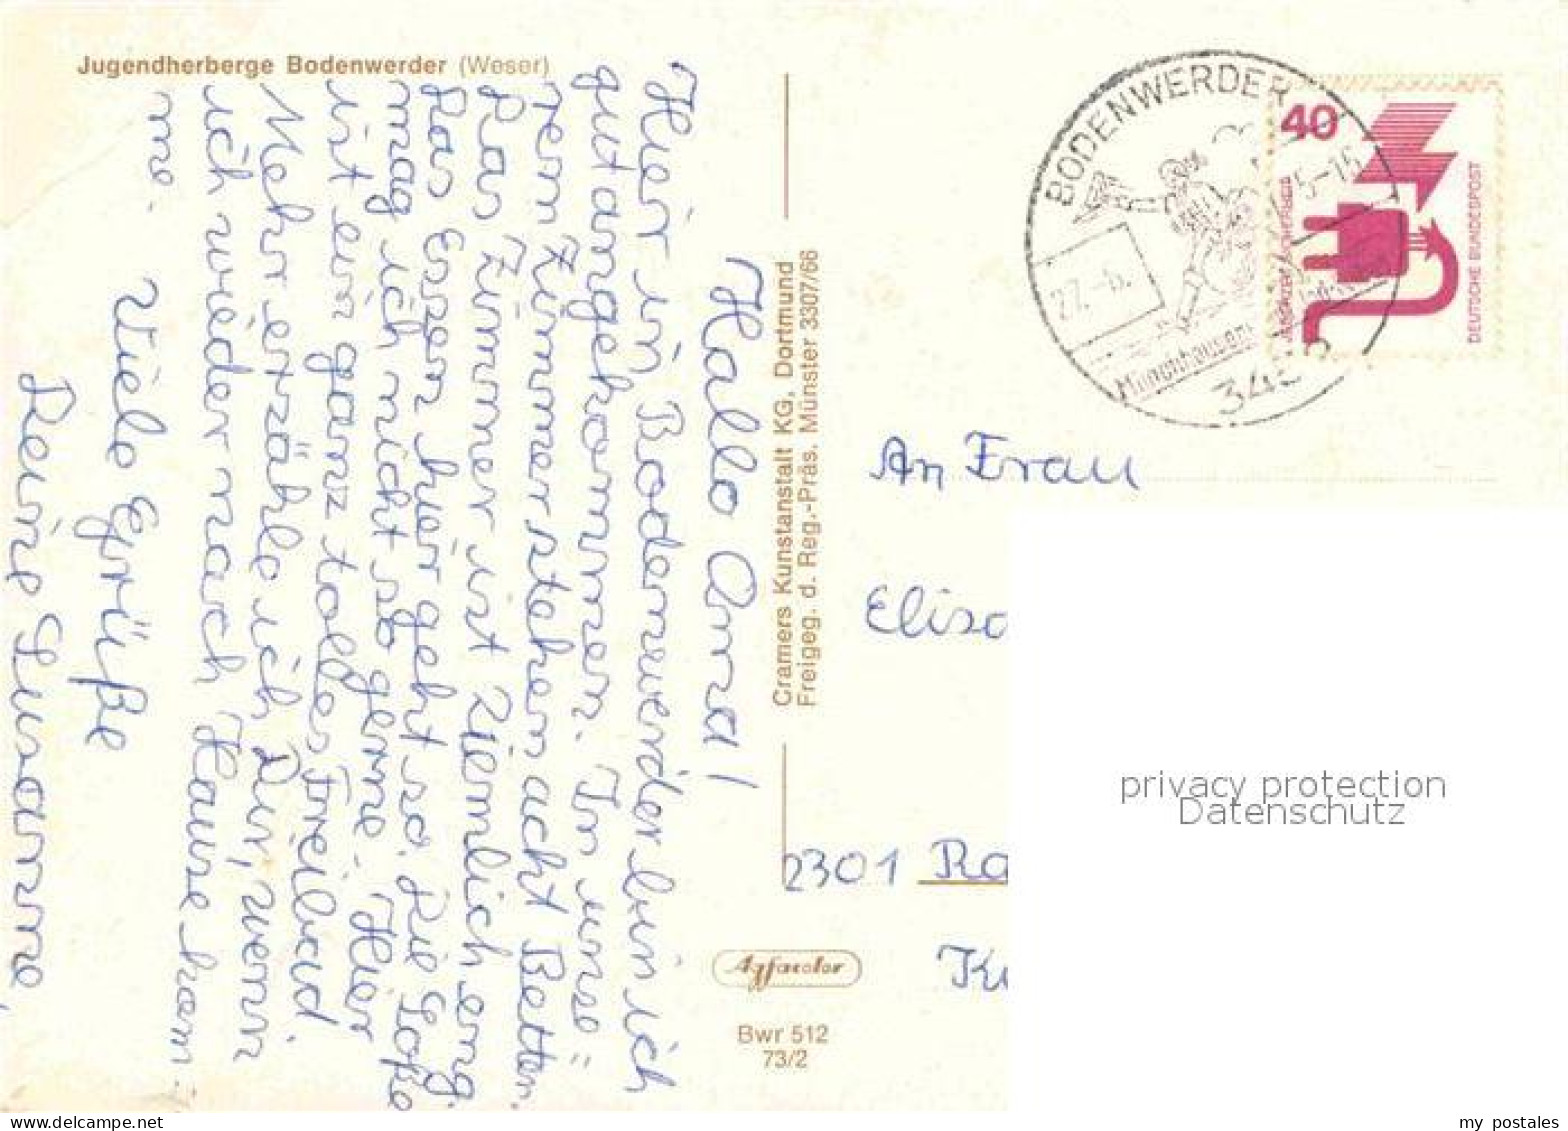 Jugendherberge Bodenwerder (Weser)
Hallo Oma!
Hier in Bodenwerder bin ich
gut angekommen. In unse=
rem Zimmer stehen acht Betten.
Das Zimmer ist ziemlich eng.
Das Essen hier geht so. Die Soße
mag ich nicht so gerne. Hier
ist ein ganz tolles Freibad
Mehr erzähle ich Dir, wenn
ich wieder nach Hause kom=
me.
Viele Grüße
Deine Susanne
Cramers Kunstanstalt KG, Dortmund
Freigeg. d. Reg.-Präs. Münster 3307/66
Agfacolor
Bwr 512
73/2
BODENWERDER
27.-6.
75-16
Münchhausen
345
40
DEUTSCHE BUNDESPOST
An Frau
Elisa
2301 Ra
Ki
privacy protection
Datenschutz
my_postales